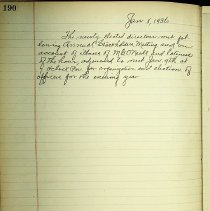 190
Jan 8, 1936
The newly elected directors met fol-
lowing Annual Stockholders Meeting and on
account of illness of McNeill and lateness
of the hour, adjourned to meet Jan 9th at
7 o'clock P.M. for organization and election of
officers for the ensuing year